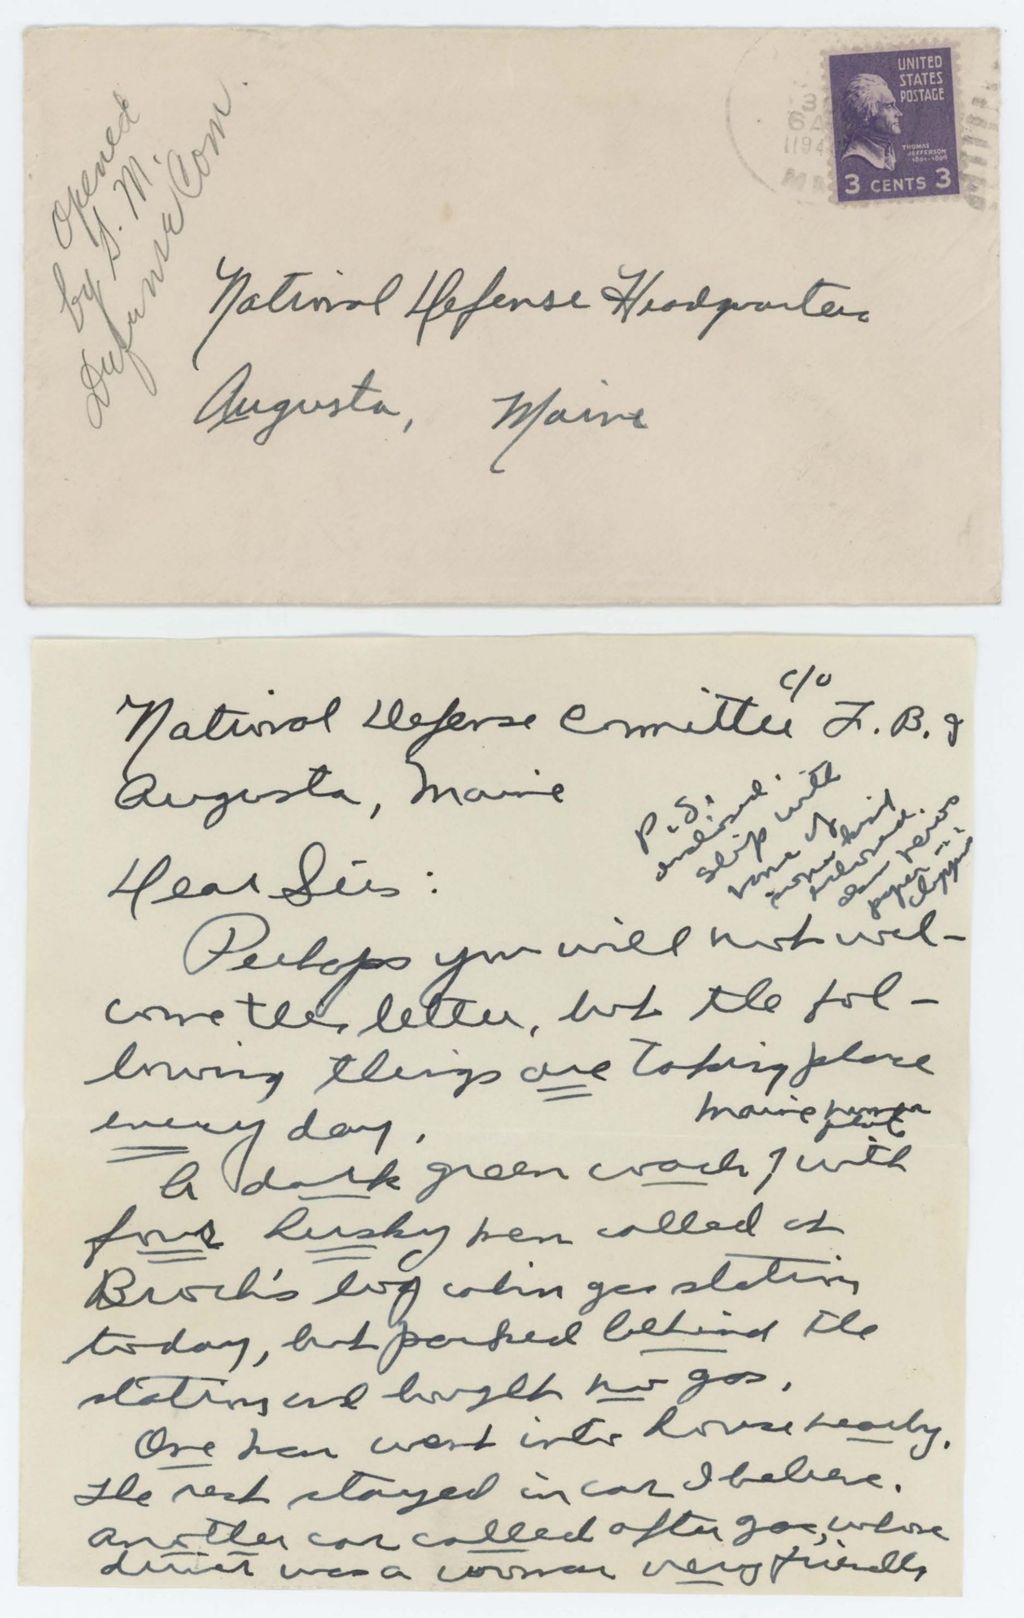 Opened
by S. M.
Defense Com.
3
6 A
1194
UNITED
STATES
POSTAGE
THOMAS
JEFFERSON
1801-1809
3 CENTS 3
National Defense Headquarters
Augusta, Maine
National Defense Committee c/o F. B. I
Augusta, Maine
P.S.
enclosed
slip with
name of
some
enclosed.
also news
paper
clipping
Dear Sirs:
Perhaps you will not wel-
come this letter, but the fol-
lowing things are taking place
every day.
Maine number
plate
A dark green coach, with
four husky men called at
Brock's log cabin gas station
today, but parked behind the
station and bought no gas.
One man went into house nearby.
The rest stayed in car I believe.
Another car called after gas, whose
driver was a woman very friendly